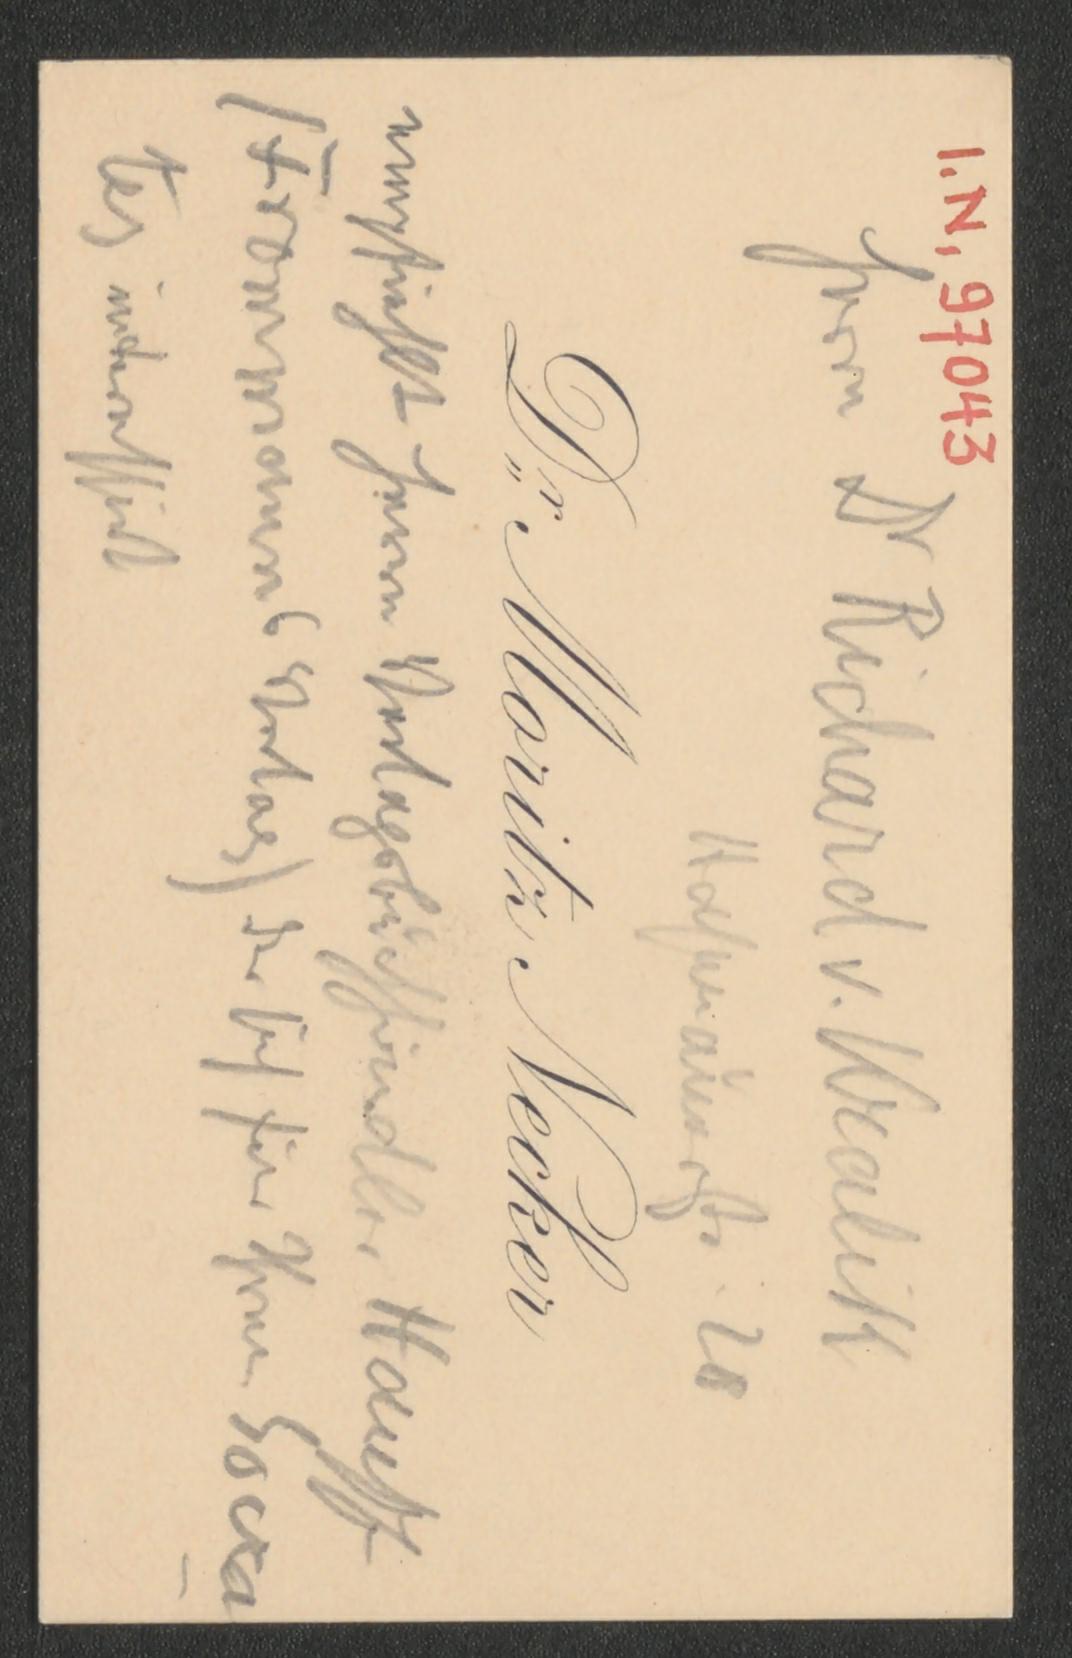 I.N. 97043
Herrn Dr Richard v. Kralik
Dr. Moritz Necker
empfiehlt Herrn Verlagsbuchhändler Hauff
(Frommanns Verlag) der sich für Ihren Socra-
tes interessirt